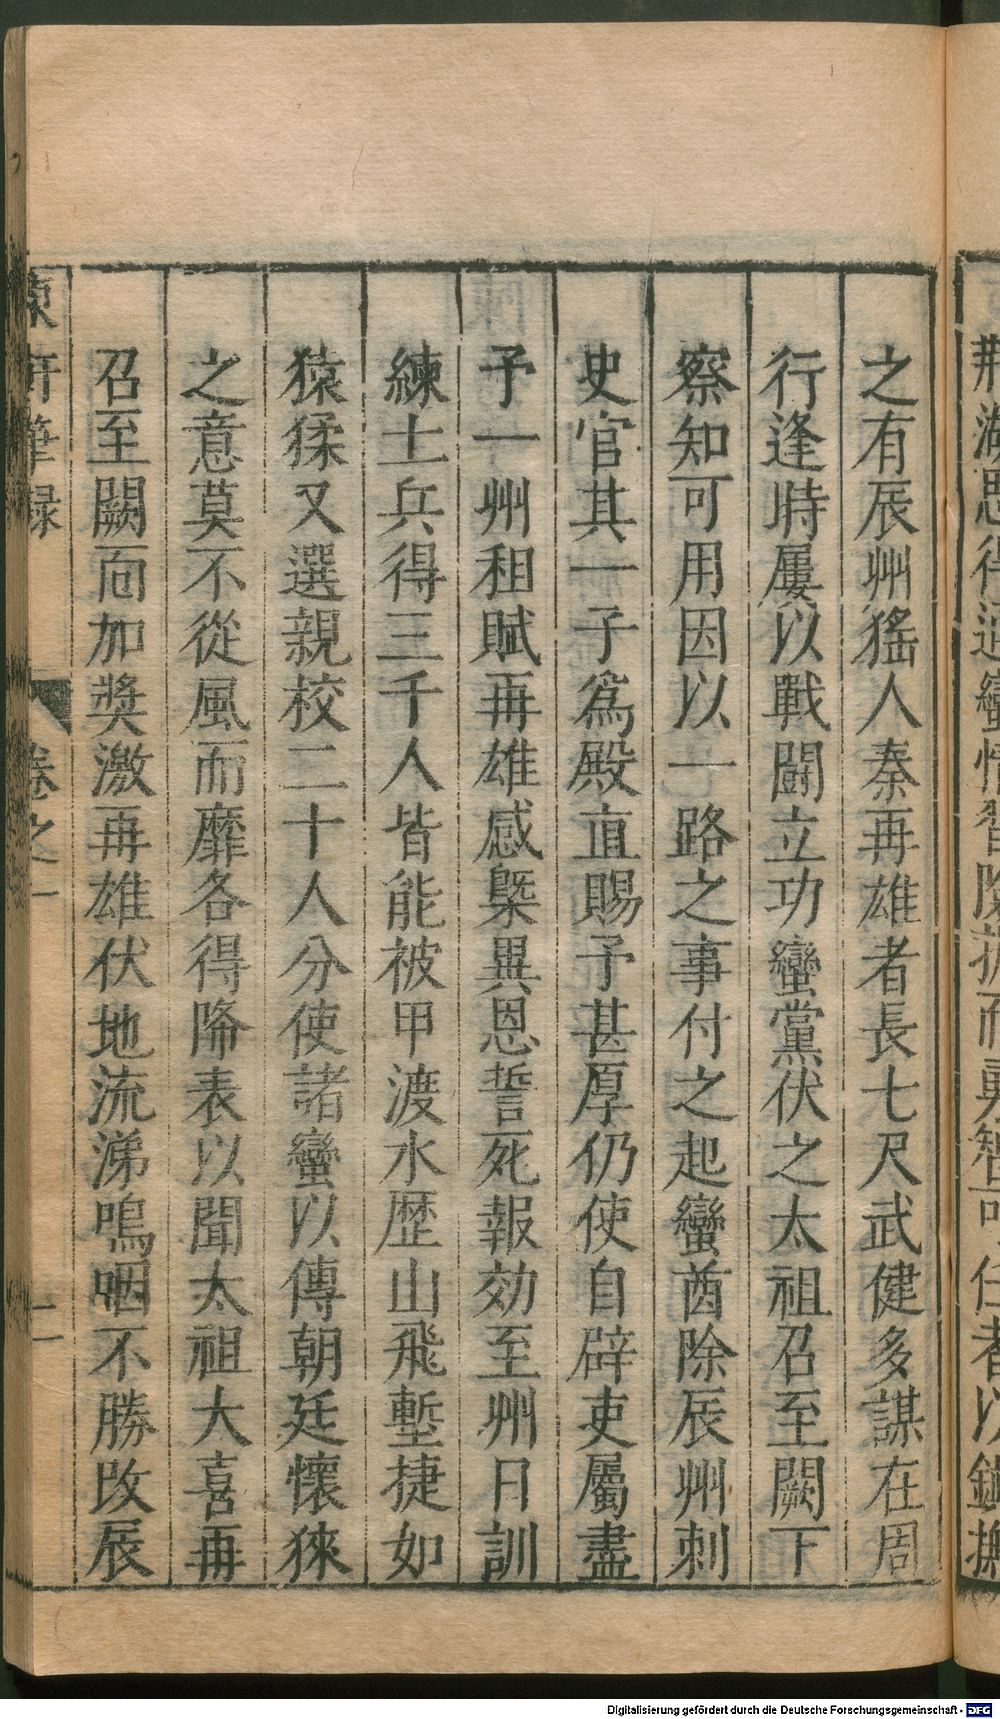 荆湖思得通蠻情習險扼而勇智可任者以鎮撫
之有辰州猺人秦再雄者長七尺武健多謀在周
行逢時屢以戰鬬立功蠻黨伏之太祖召至闕下
察知可用因以一路之事付之起蠻酋除辰州刺
史官其一子爲殿直賜予甚厚仍使自辟吏屬盡
予一州租賦再雄感槩異恩誓死報効至州日訓
練士兵得三千人皆能被甲渡水歷山飛塹捷如
猿猱又選親校二十人分使諸蠻以傳朝廷懷徠
之意莫不從風而靡各得降表以聞太祖大喜再
召至闕面加獎激再雄伏地流涕嗚咽不勝改辰
東軒筆録 卷之一 二
Digitalisierung gefördert durch die Deutsche Forschungsgemeinschaft - DFG